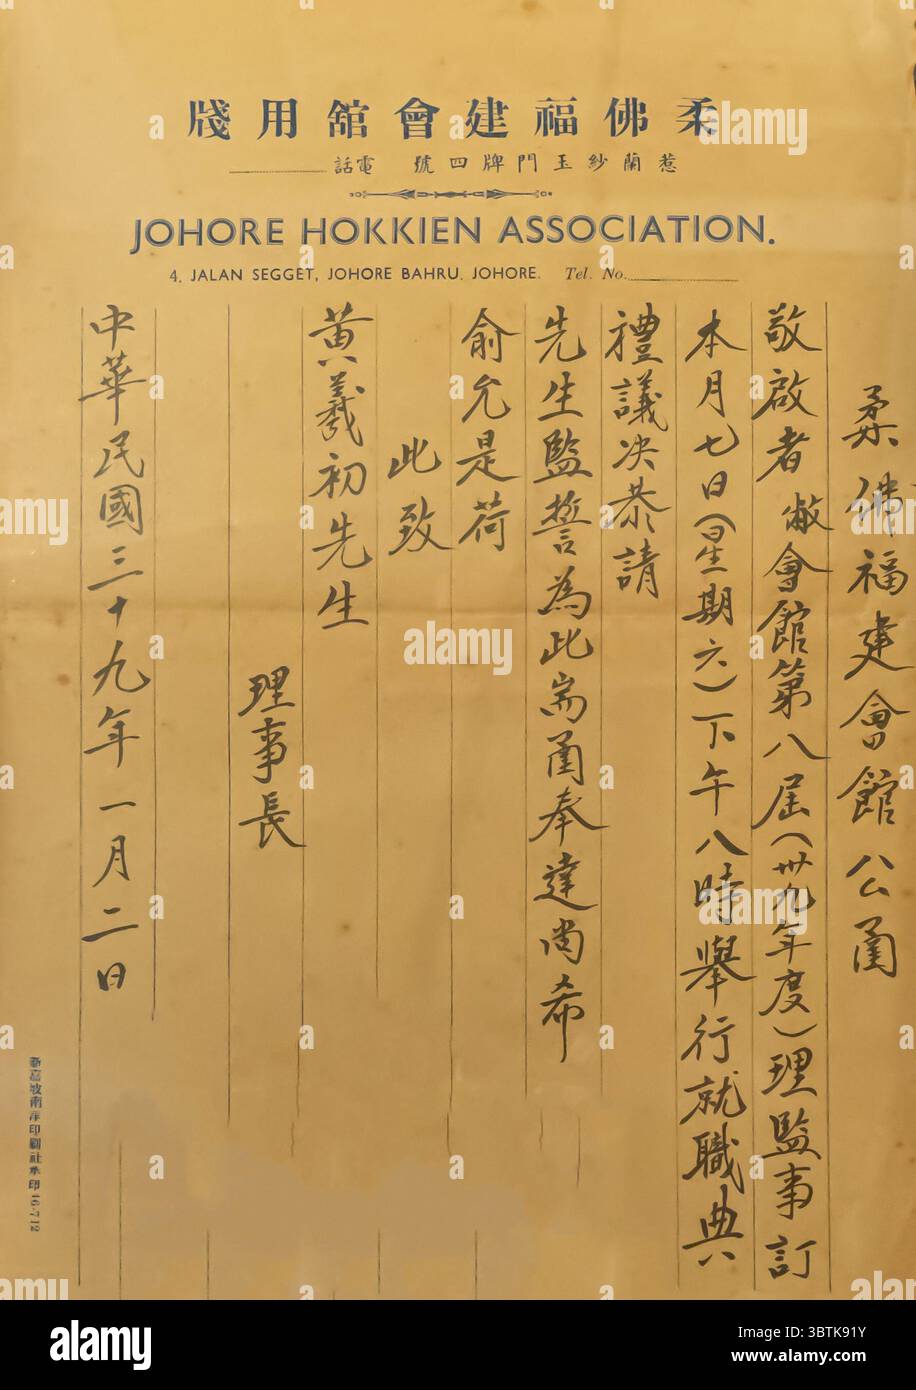 柔佛福建會舘用牋
惹蘭紗玉門牌四號 電話
JOHORE HOKKIEN ASSOCIATION.
4, JALAN SEGGET, JOHORE BAHRU, JOHORE. Tel. No.
柔佛福建會館公函
敬啟者 敝會館第八屆(卅九年度)理監事訂
本月七日(星期六)下午八時舉行就職典
禮議决恭請
先生監誓為此耑函奉達尚希
俞允是荷
此致
黄羲初先生
理事長
中華民國三十九年一月二日
新嘉坡南洋印刷社承印 16-712
alamy
Image ID: 3BTK91Y
www.alamy.com